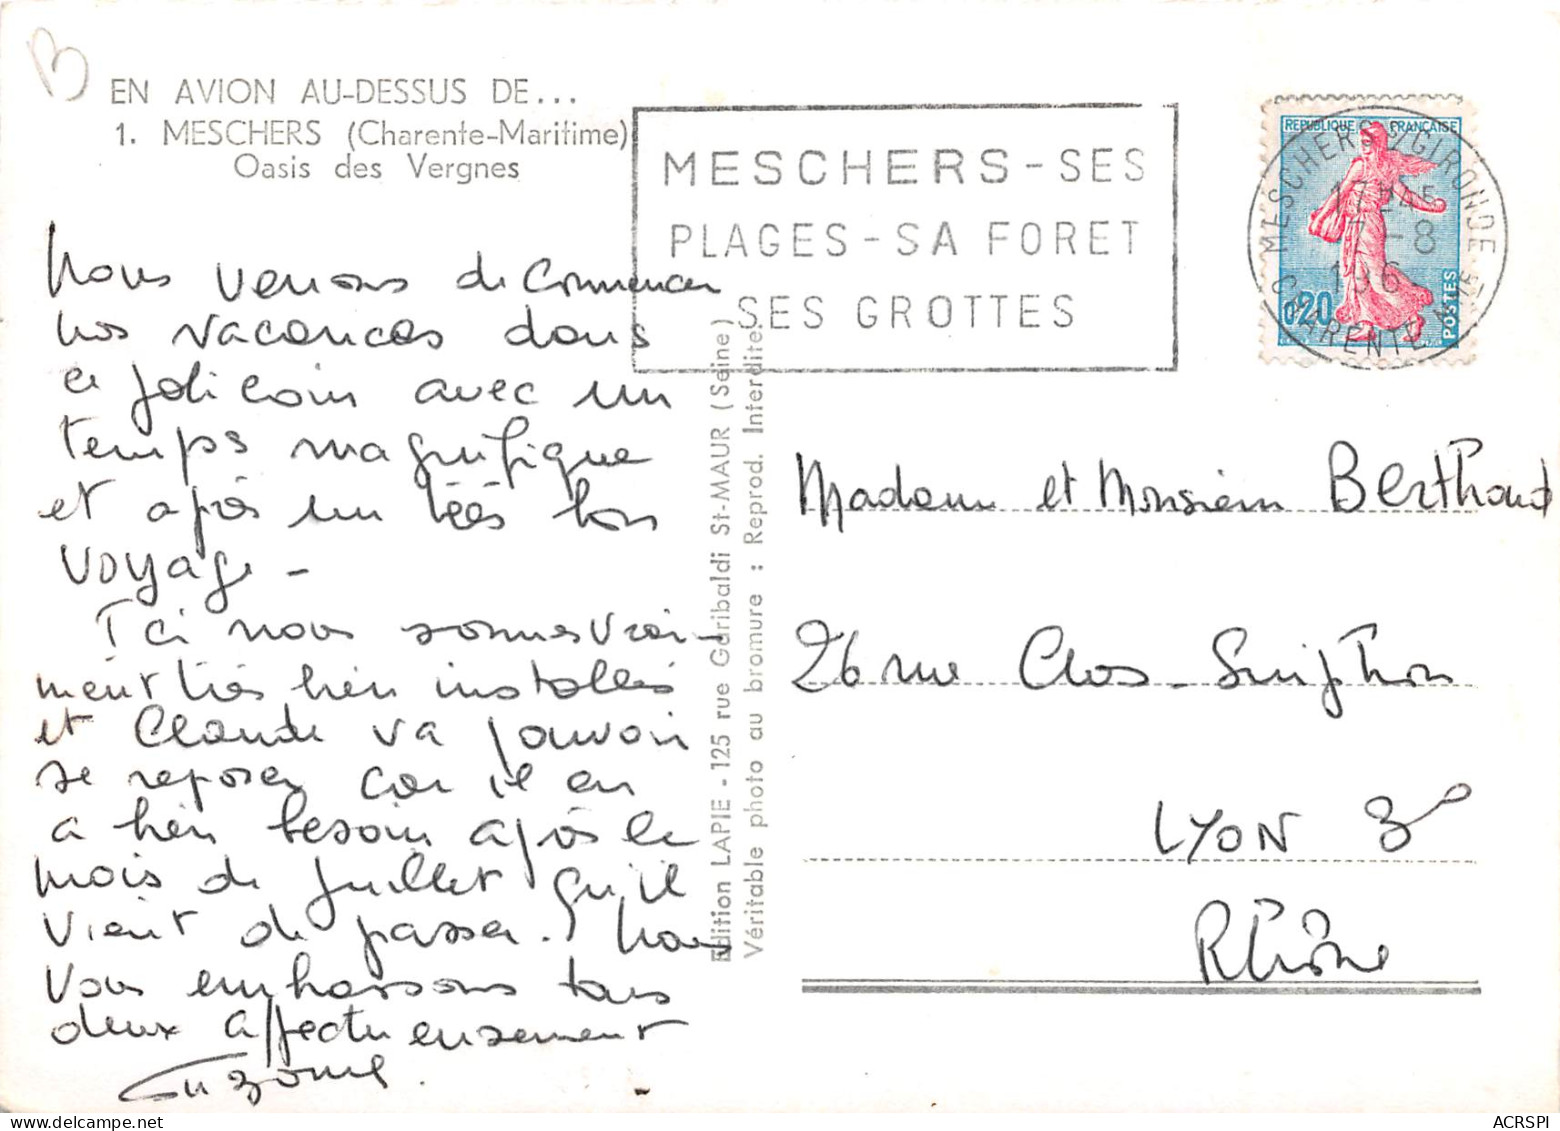 B
EN AVION AU-DESSUS DE...
1. MESCHERS (Charente-Maritime)
Oasis des Vergnes
Nous venons de commencer
nos vacances dans
ce joli coin avec un
temps magnifique
et après un très bon
voyage -
Ici nous sommes vrai-
ment très bien installés
et Claude va pouvoir
se reposer car il en
a bien besoin après le
mois de Juillet qu'il
vient de passer. Nous
vous embrassons tous
deux affectueusement
Suzanne.
Edition LAPIE - 125 rue Garibaldi St-MAUR (Seine)
Véritable photo au bromure : Reprod. Interdite.
MESCHERS - SES
PLAGES - SA FORET
SES GROTTES
REPUBLIQUE FRANÇAISE
0,20
POSTES
MESCHERS S/GIRONDE
17H45
7-8
196
CHARENTE MME
Madame et Monsieur Berthaud
26 rue Clos-Suiphon
LYON 3e
Rhône
ACRSPI